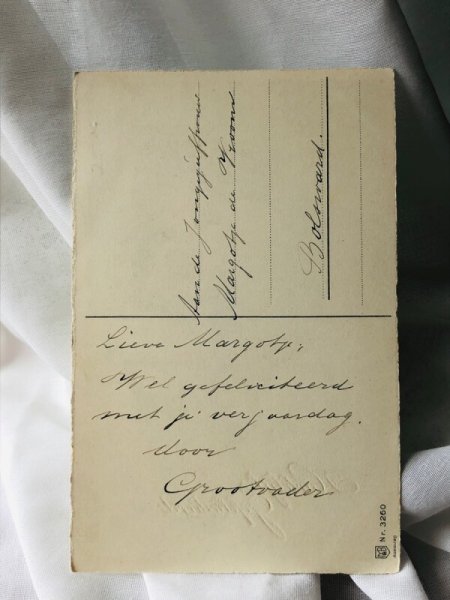 Aan de Jongejuffrouw
Margotje de Vroome
Bolsward.
Lieve Margotje,
Wel gefeliciteerd
met je verjaardag.
Door
Grootvader
Nr. 3260
Germany